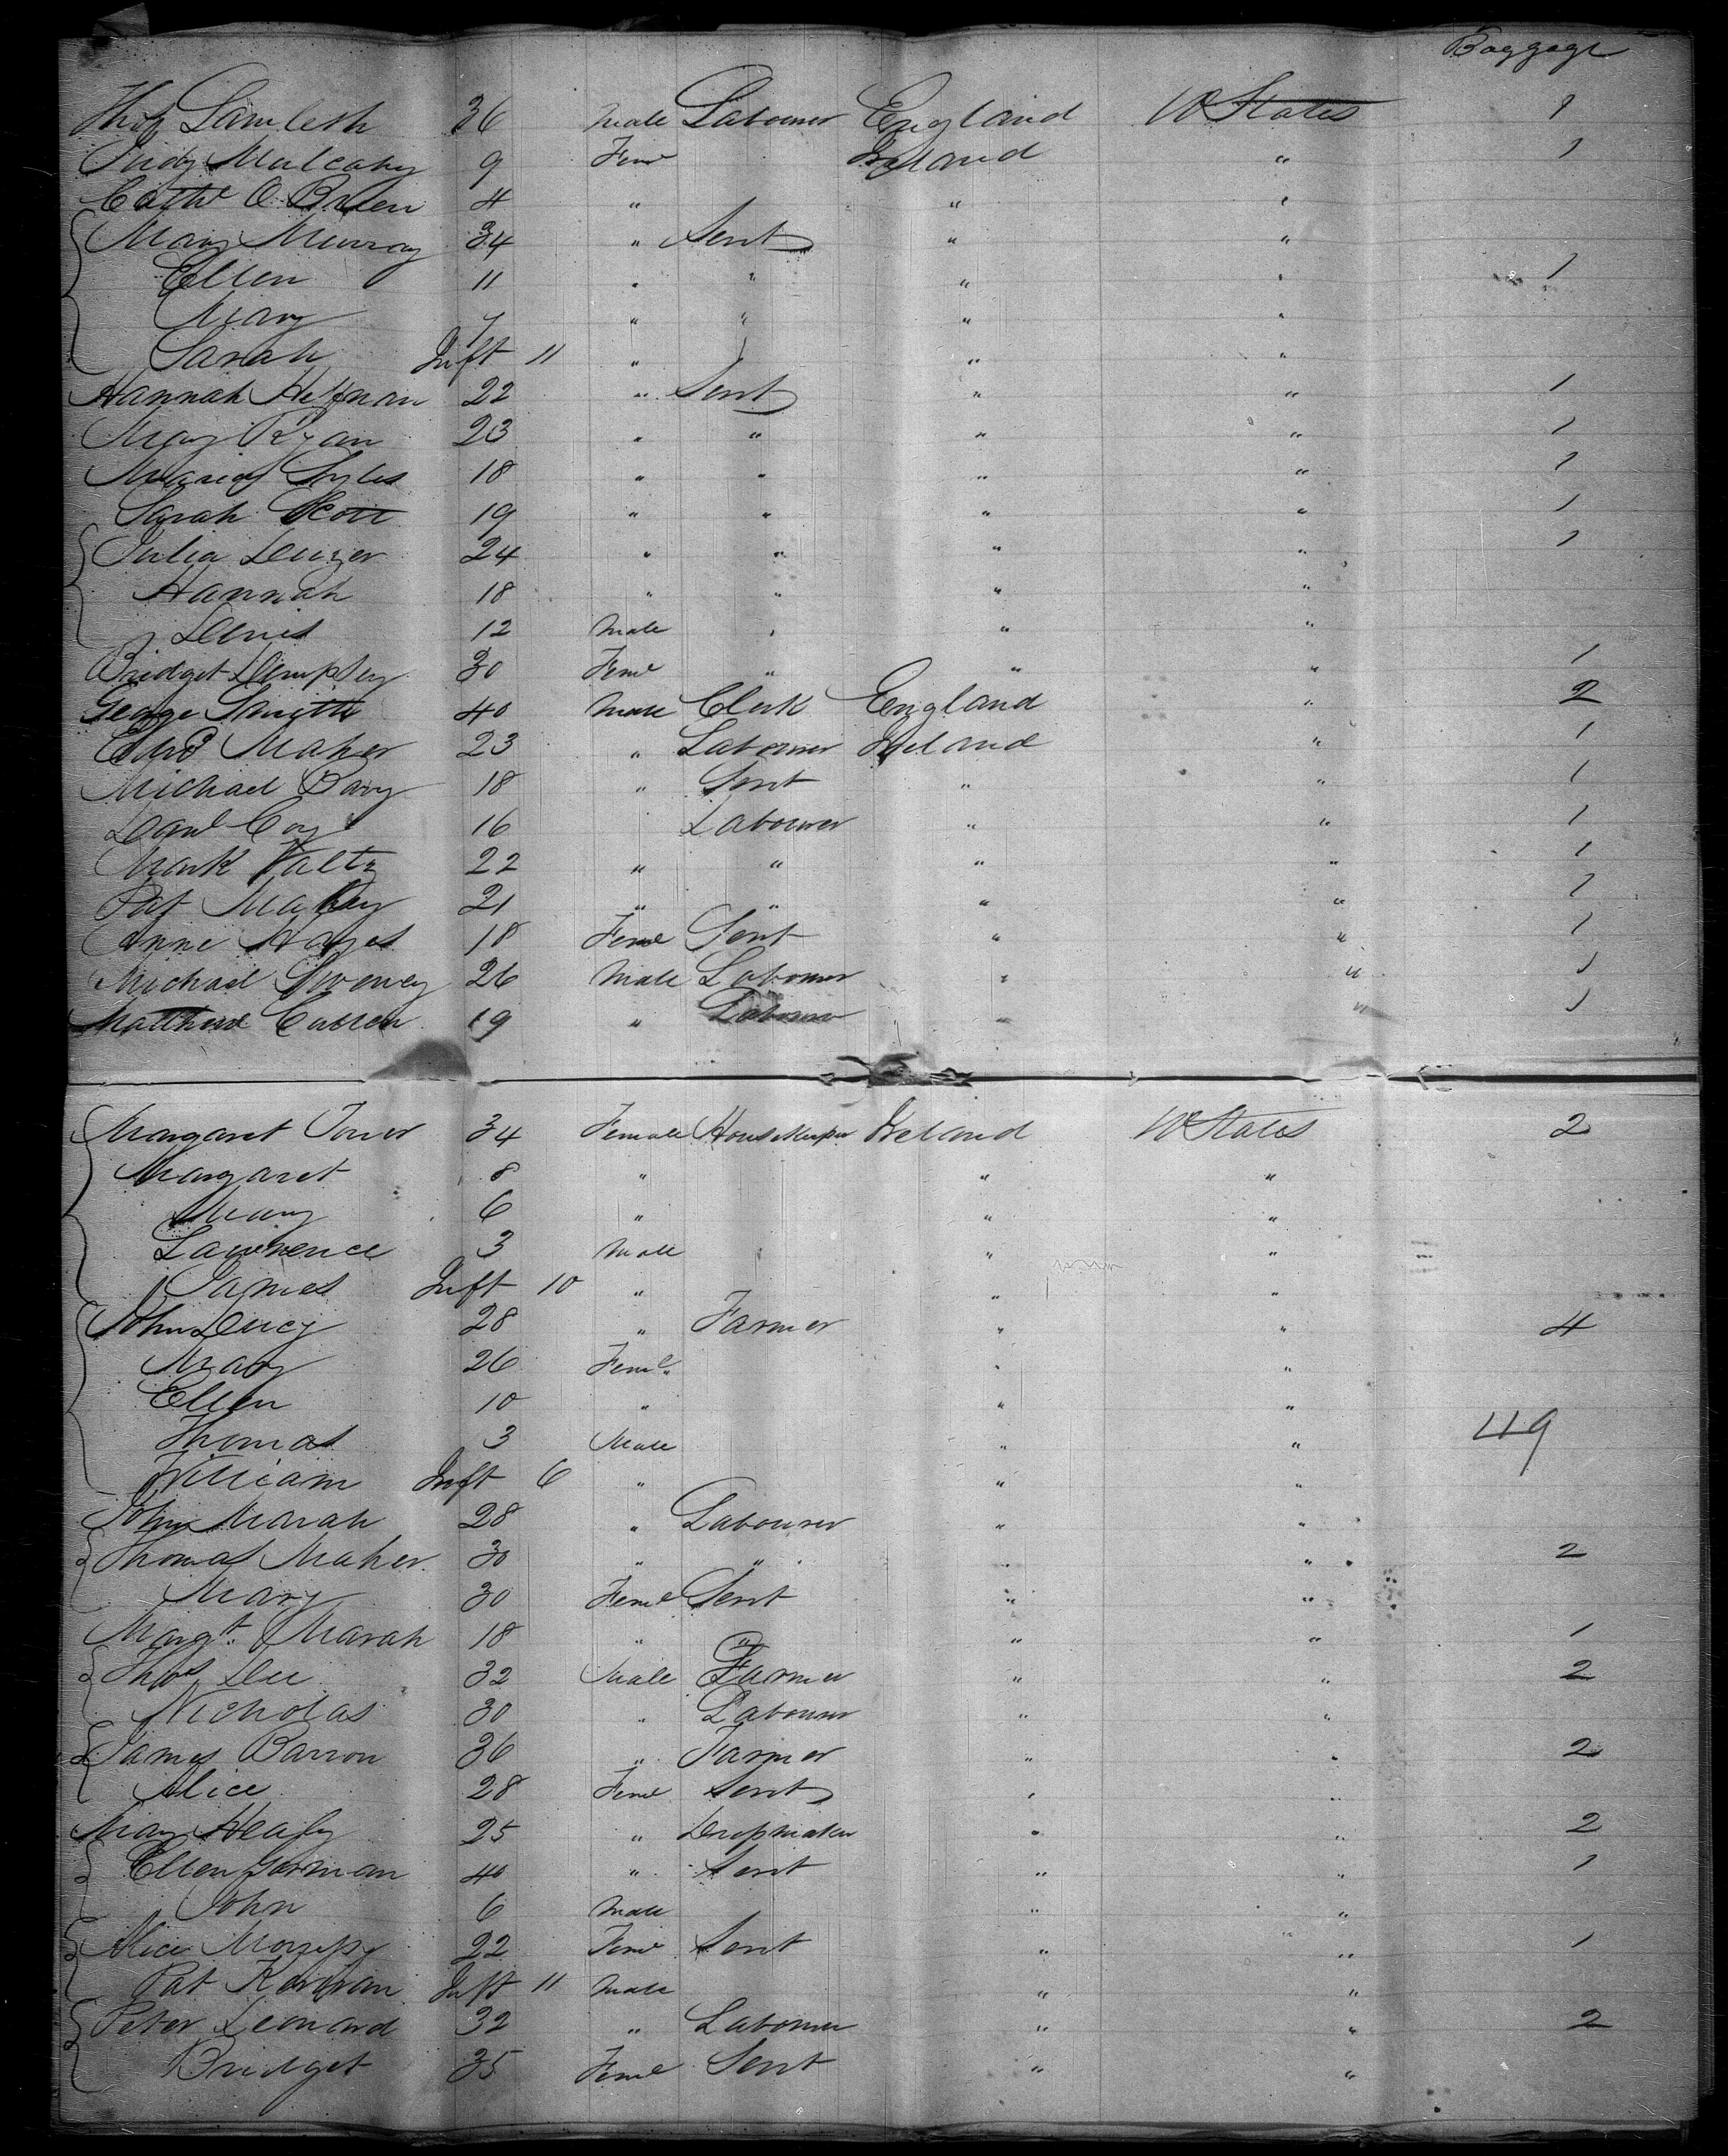 Baggage
Thos Lamlesh 36 Male Labourer England U States 1
Judy Mulcahy 9 Feme Ireland " 1
Cathe O Brien 4 " " "
Mary Murray 34 " Servt " "
Ellen 11 " " " " 1
Mary 7 " " " "
Sarah Inft 11 " " "
Hannah Hefnan 22 " Servt " " 1
Mary Ryan 23 " " " " 1
Maria 18 " " " " 1
Sarah Scott 19 " " " " 1
Julia 24 " " " " 1
Hannah 18 " " " "
Denis 12 Male " " "
Bridget Dempsey 30 Feme " " " 1
George Smith 40 Male Clerk England " 2
Edwd Maher 23 " Labourer Ireland " 1
Michael Barry 18 " Servt " " 1
Danl Coy 16 Labourer " " 1
Mark 22 " " " " 1
Pat 21 " " " " 1
Anne Hayes 18 Feme Servt " " 1
Michael Sweeney 26 Male Labourer " " 1
Matthew Cullen 19 " Labourer " " 1
Margaret Tower 34 Female Housekeeper Ireland U States 2
Margaret 8 " " "
Mary 6 " " "
Lawrence 3 Male " "
James Inft 10 " " "
John Lucy 28 " Farmer " " 4
Mary 26 Feme " "
Ellen 10 " " "
Thomas 3 Male " " 49
William Inft 6 " " "
John Marah 28 " Labourer " "
Thomas Maher 30 " " " " 2
Mary 30 Feme Servt " "
Margt Marah 18 " " " " 1
Thos Lee 32 Male Farmer " " 2
Nicholas 30 " Labourer " "
James Barron 36 " Farmer " " 2
Alice 28 Feme Servt " "
Mary Heafy 25 " Dressmaker " " 2
Ellen Gorman 40 " Servt " " 1
John 6 Male " "
Alice 22 Feme Servt " " 1
Pat Inft 11 Male " "
Peter Leonard 32 " Labourer " " 2
Bridget 35 Feme Servt " "